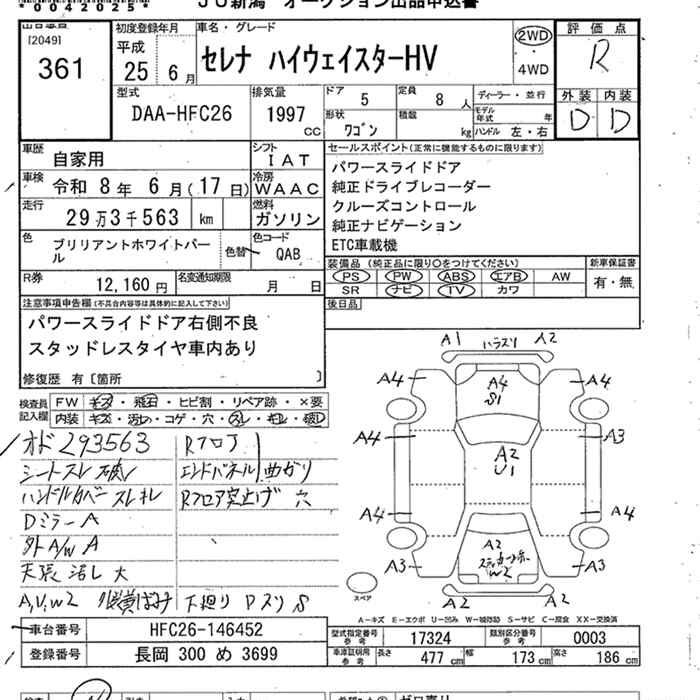 *0042025*
JU新潟 オークション出品申込書
出品番号
[2049]
361
初度登録年月
平成
25 年 6 月
車名・グレード
セレナ ハイウェイスターHV
2WD
・
4WD
評価点
R
外装 内装
D D
型式
DAA-HFC26
排気量
1997
CC
ドア
5
定員
8 人
ディーラー・並行
形状
ワゴン
積載
kg
モデル年式 年
ハンドル 左・右
車歴
自家用
シフト
IAT
車検
令和 8 年 6 月(17 日)
冷房
WAAC
走行
29万3千563 km
燃料
ガソリン
色
ブリリアントホワイトパール
色替
色コード
QAB
R券
12,160 円
名変通知期限
月 日
セールスポイント(正常に機能するものに限ります)
パワースライドドア
純正ドライブレコーダー
クルーズコントロール
純正ナビゲーション
ETC車載機
装備品(純正品に限り○をつけてください)
新車保証書
PS PW ABS エアB AW
SR ナビ TV カワ
有・無
後日品
注意事項申告欄(不具合内容等は具体的に記入して下さい)
パワースライドドア右側不良
スタッドレスタイヤ車内あり
修復歴 有〔箇所 〕
検査員
記入欄
FW キズ・飛石・ヒビ割・リペア跡・×要
内装 キズ・汚れ・コゲ・穴・スレ・キレ・破レ
オド 293563
シートスレ 破レ
ハンドルカバー スレ キレ
Dミラー A
外A/W A
天張 汚レ 大
A,U,W2
Rフロア
エンドパネル 曲がり
Rフロア突上げ 穴
下廻り
A1 A2
A4 A4 A4
S1
A4 A3
A2
U1
A4 A4
A2
W2
A3 A3
A2 A2
スペア
A-キズ E-エクボ U-凹み W-補修跡 S-サビ C-腐食 XX-交換済
車台番号
HFC26-146452
登録番号
長岡 300 め 3699
型式指定番号
参考
17324
類別区分番号
参考
0003
車庫証明用
参考
長さ 477 cm
幅 173 cm
高さ 186 cm